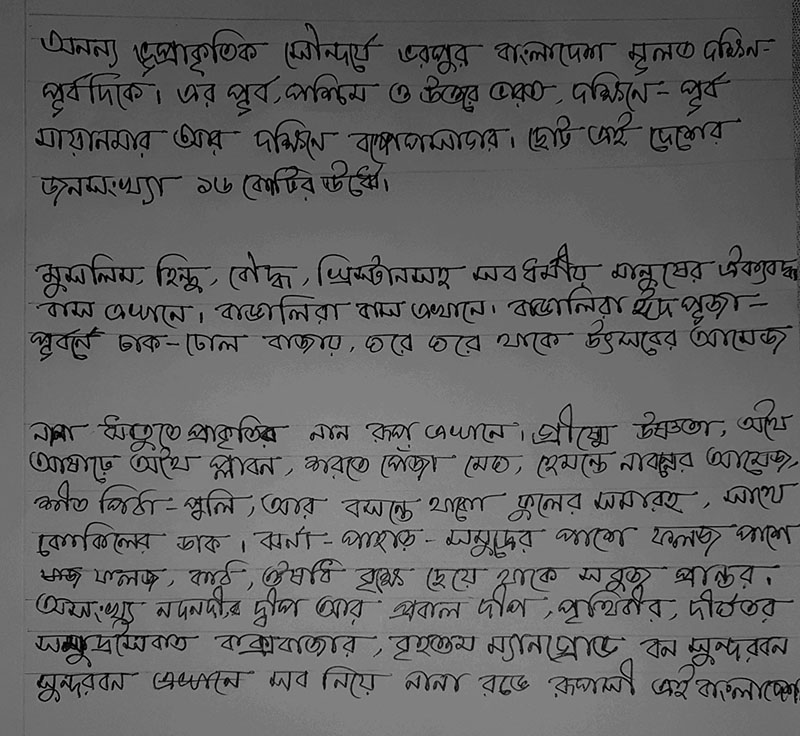 অনন্য ভূপ্রাকৃতিক সৌন্দর্যে ভরপুর বাংলাদেশ মূলত দক্ষিন-
পূর্বদিকে। এর পূর্ব, পশ্চিম ও উত্তরে ভারত, দক্ষিনে-পূর্ব
মায়ানমার আর দক্ষিনে বঙ্গোপসাগর। ছোট এই দেশের
জনসংখ্যা ১৬ কোটির উর্ধ্বে।
মুসলিম, হিন্দু, বৌদ্ধ, খ্রিস্টানসহ সবধর্মীয় মানুষের ঐক্যবদ্ধ
বাস এখানে। বাঙালিরা বাস এখানে। বাঙালিরা ঈদ পূজা-
পূর্বনে ঢাক-ঢোল বাজায়, ঘরে ঘরে থাকে উৎসবের আমেজ
নানা ঋতুতে প্রাকৃতির নান রূপ এখানে। গ্রীষ্মে উষ্ণতা, অথৈ
আষাঢ়ে অথৈ প্লাবন, শরতে পেঁজা মেঘ, হেমন্তে নবান্নের আমেজ,
শীত পিঠা-পুলি, আর বসন্তে থাগে ফুলের সমারহ, সাথে
কোকিলের ডাক। ঝর্না-পাহাড়-সমুদ্রের পাশে ফলজ পাশে
ফলজ, কাঠ, ঔষধি বৃক্ষে ছেয়ে থাকে সবুজ প্রান্তর।
অসংখ্য নদনদীর দ্বীপ আর প্রবাল দীপ, পৃথিবীর, দীর্ঘতর
সমুদ্রসৈবাত বাক্সবাজার, বৃহত্তম ম্যানগ্রোভ বন সুন্দরবন
সুন্দরবন এখানে সব নিয়ে নানা রঙে রূপসী এই বাংলাদেশ